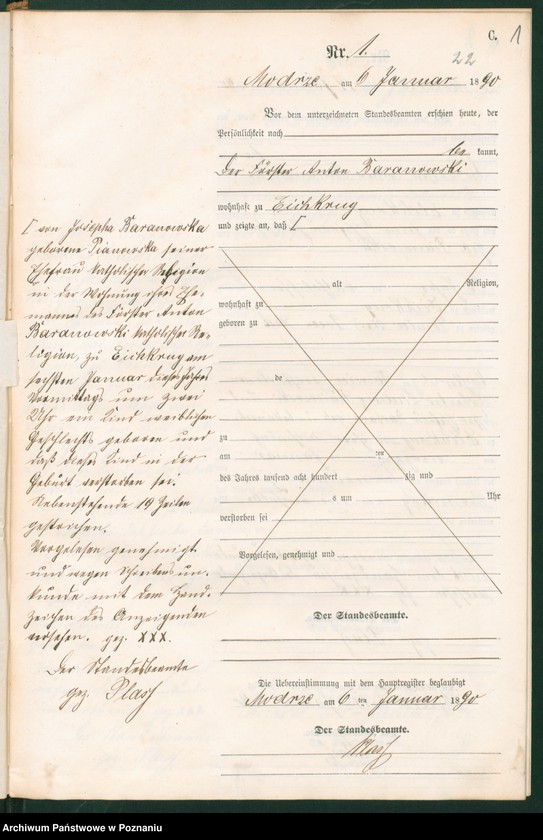 C.
1
Nr. 1.
22
Modrze am 6 Januar 1890
Vor dem unterzeichneten Standesbeamten erschien heute, der
Persönlichkeit nach
be kannt,
der Förster Anton Baranowski
wohnhaft zu Eichkrug
und zeigte an, daß [
[ von Josepha Baranowska
geborene Pianowska seiner
Ehefrau katholischer Religion
in der Wohnung ihres Ehe-
mannes des Förster Anton
Baranowski katholischer Re-
ligion, zu Eichkrug am
sechsten Januar dieses Jahres
Vormittags um zwei
Uhr ein Kind weiblichen
Geschlechts geboren und
daß dieses Kind in der
Geburt verstorben sei.
Nebenstehende 19 Zeilen
gestrichen.
Vorgelesen genehmigt
und wegen Schreibensun-
kunde mit dem Hand-
zeichen des Anzeigenden
versehen. gez. XXX.
Der Standesbeamte
gez. Plasz
alt Religion,
wohnhaft zu
geboren zu
de
zu
am ten
des Jahres tausend acht hundert zig und
s um Uhr
verstorben sei
Vorgelesen, genehmigt und
Der Standesbeamte.
Die Uebereinstimmung mit dem Hauptregister beglaubigt
Modrze am 6 ten Januar 1890
Der Standesbeamte.
Plasz
Archiwum Państwowe w Poznaniu